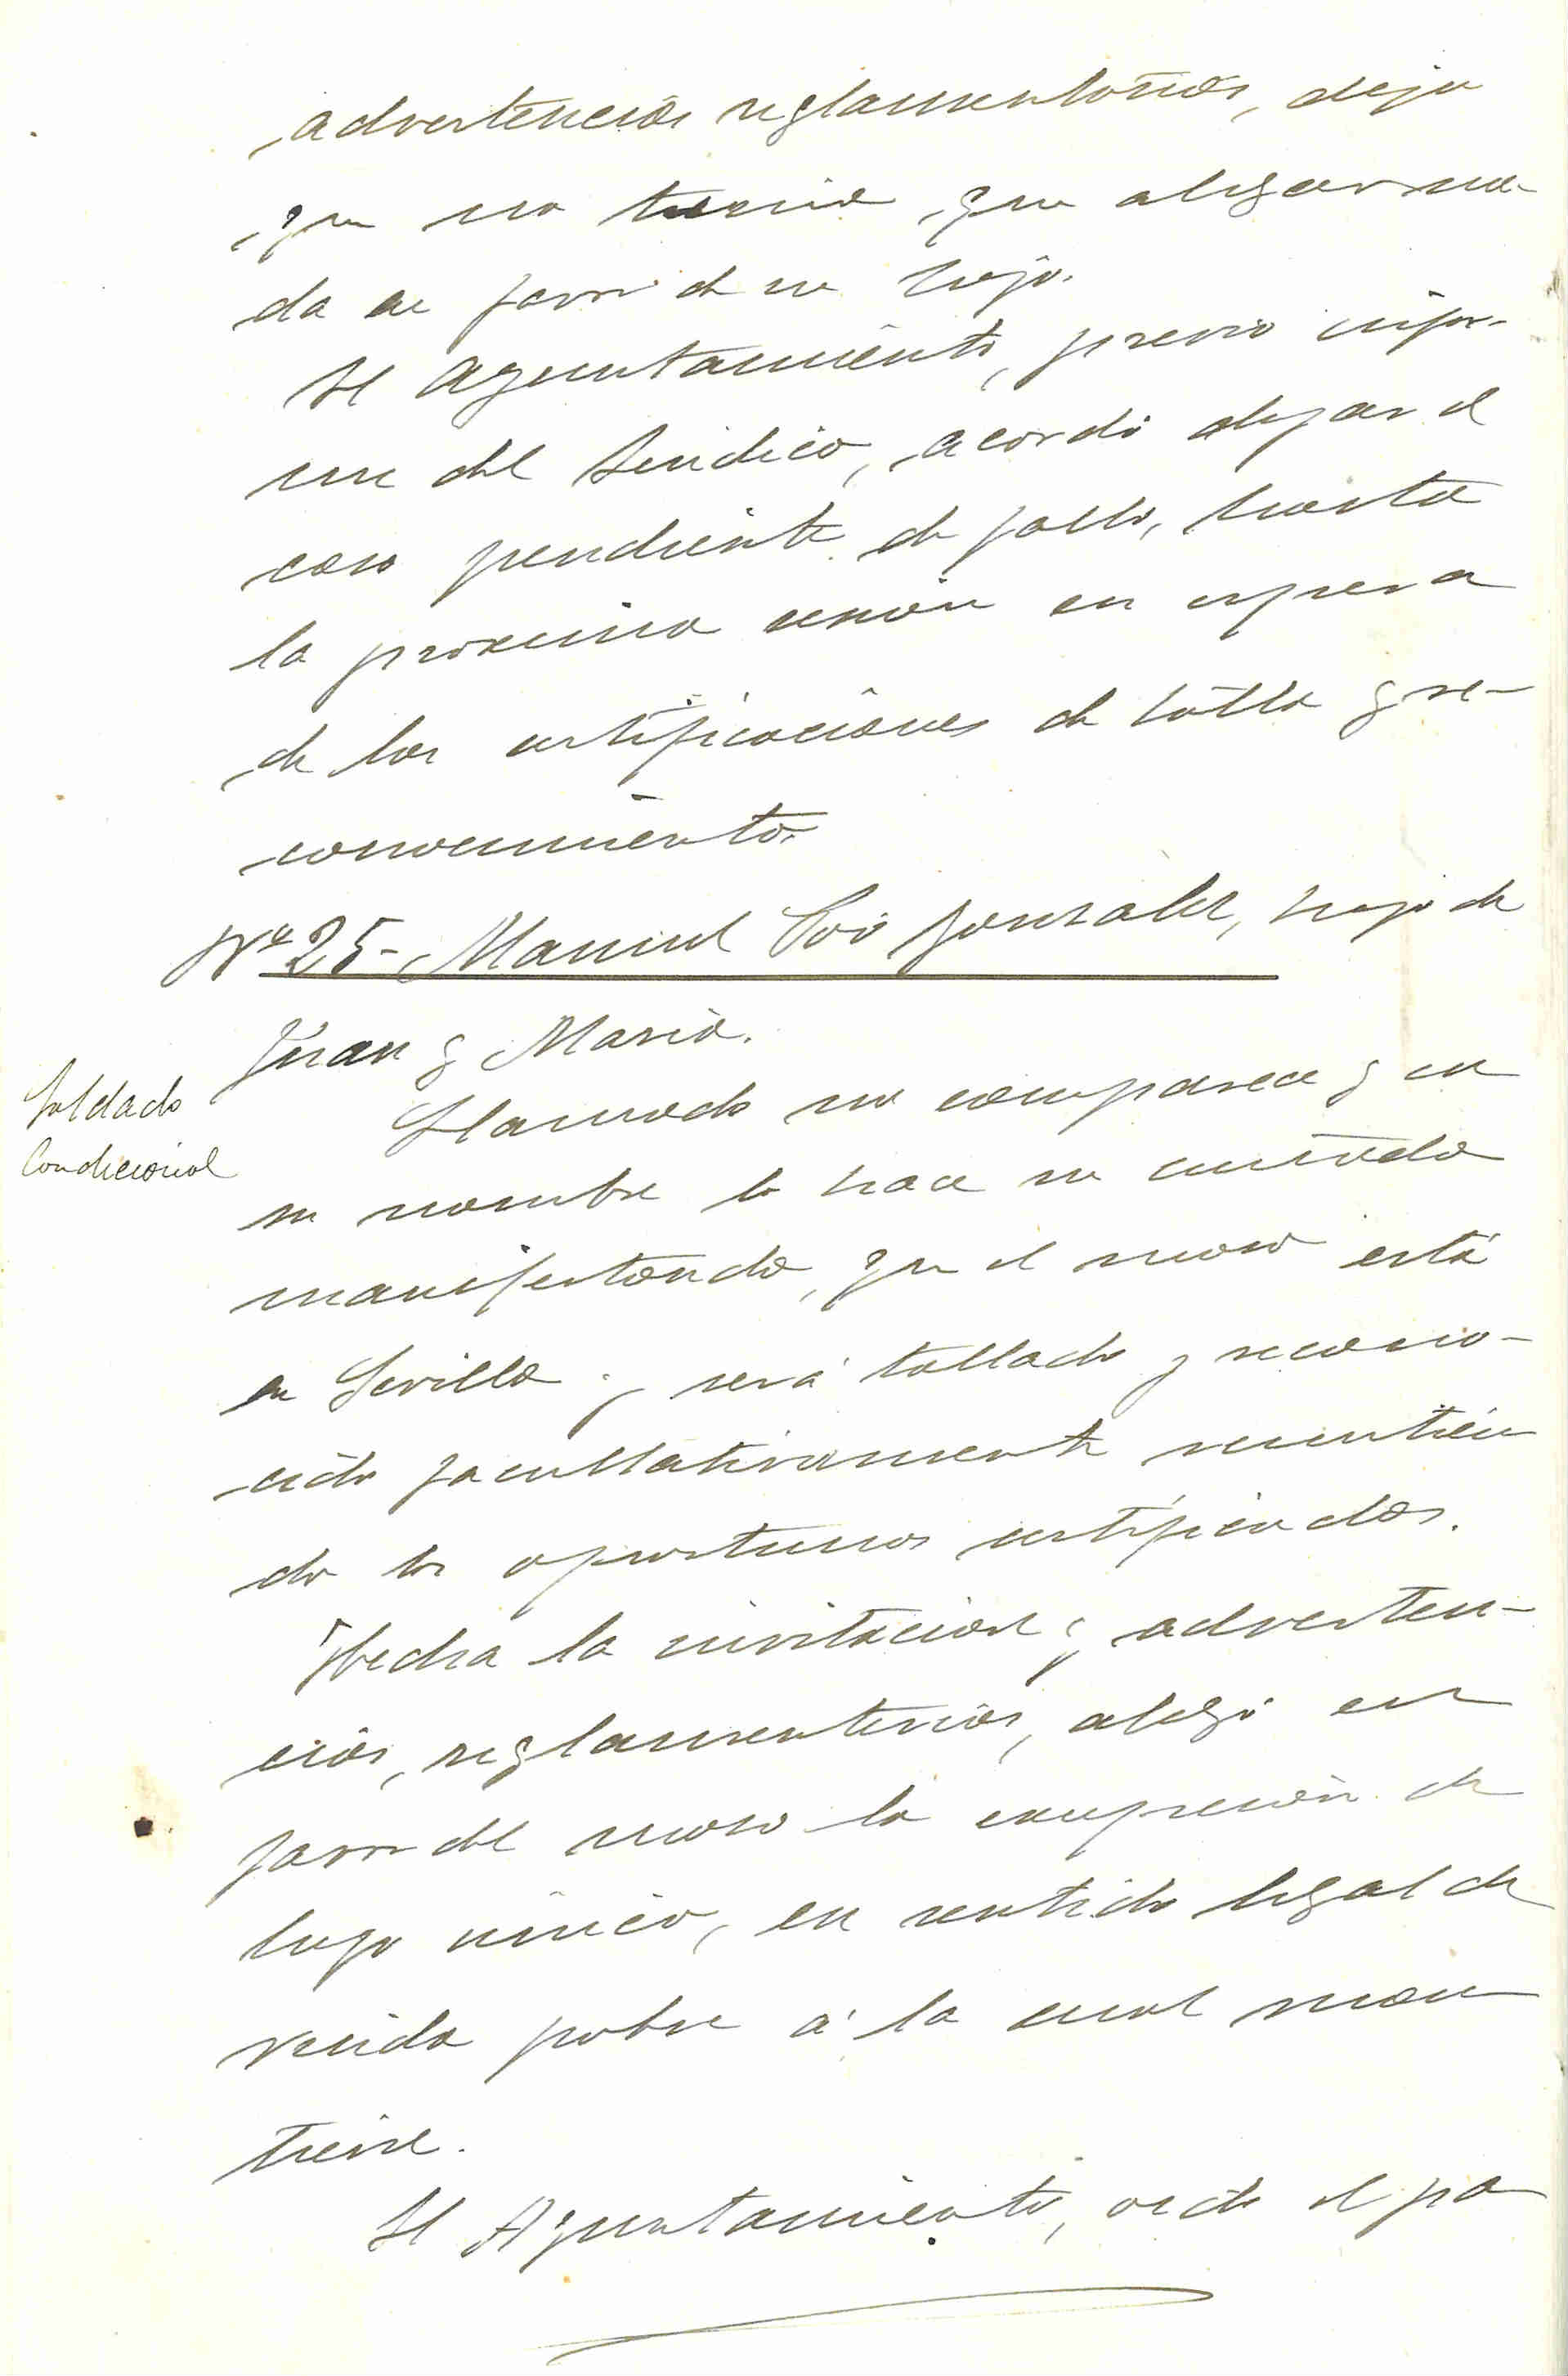 advertencias reglamentarias, dijo
que no tenia que alegar na-
da en favor de su hijo.
El Ayuntamiento, previo infor-
me del Sindico, acordó dejar el
caso pendiente de fallo, hasta
la proxima sesión en espera
de las certificaciones de talla y re-
conocimiento.
Nº 25- Manuel González, hijo de
Juan y Maria.
Soldado
Condicional
Llamado no comparece y en
su nombre lo hace su cuñado
manifestando, que el mozo está
en Sevilla y será tallado y recono-
cido facultativamente remitien
do los oportunos certificados.
Hecha la invitacion y adverten-
cias, reglamentarias, alegó en
favor del mozo la excepción de
hijo único, en sentido legal de
viuda pobre á la cual man
tiene.
El Ayuntamiento, oido el pa